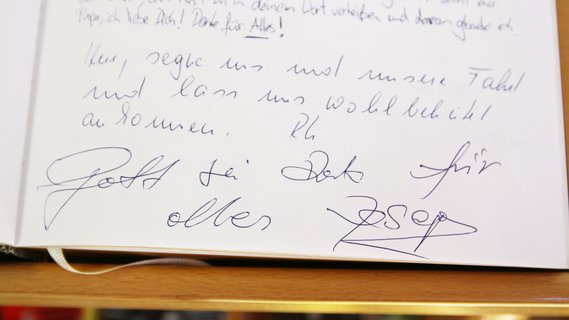 in deinem Wort verheißen und daran glaube ich.
Papa, ich liebe Dich! Danke für Alles!
Herr, segne uns und unsere Fahrt
und lass uns wohlbehütet
ankommen. Rh
Gott sei Dank für
alles